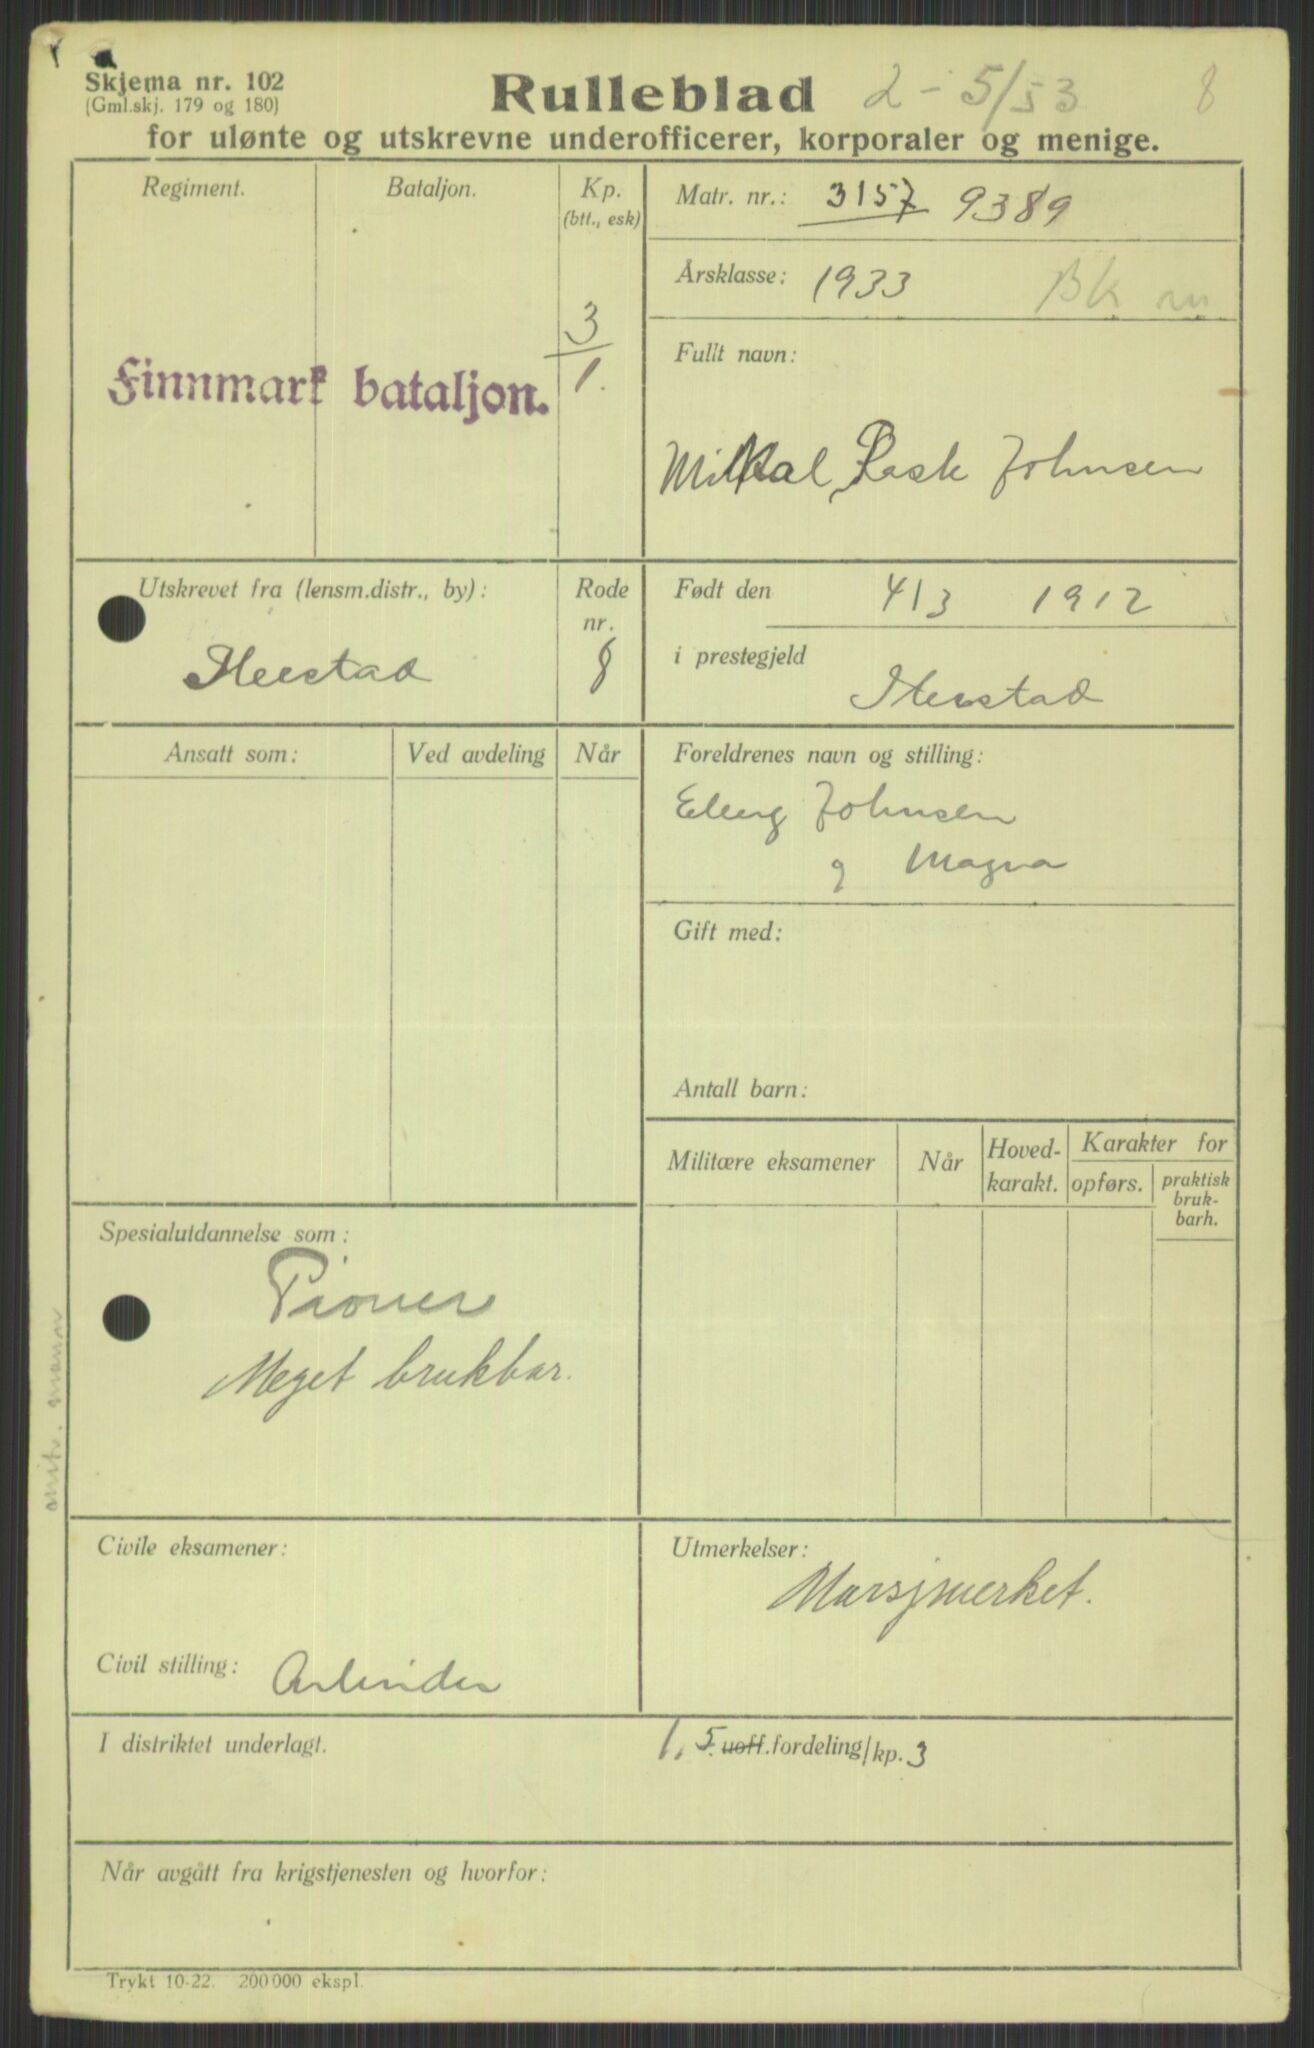 Skjema nr. 102
(Gml.skj. 179 og 180)
Rulleblad 2-5/53 8
for ulønte og utskrevne underofficerer, korporaler og menige.
Regiment.
Bataljon.
Kp.
(btt., esk)
3
1.
Finnmark bataljon.
Matr. nr.: 3157 9389
Årsklasse: 1933 Bk m
Fullt navn:
Mikkal Johnsen
Utskrevet fra (lensm.distr., by):
Rode
nr.
8
Født den 4/3 1912
i prestegjeld
Ansatt som:
Ved avdeling
Når
Foreldrenes navn og stilling:
Johnsen
g Magna
Gift med:
Antall barn:
Militære eksamener
Når
Hoved-
karakt.
Karakter for
opførs.
praktisk
bruk-
barh.
Spesialutdannelse som:
Pioner
Meget brukbar.
mitr. mann
Civile eksamener:
Utmerkelser:
Marsjmerket.
Civil stilling: Arbeider
I distriktet underlagt.
1. 5. uoff. fordeling/kp. 3
Når avgått fra krigstjenesten og hvorfor:
Trykt 10-22. 200 000 ekspl.